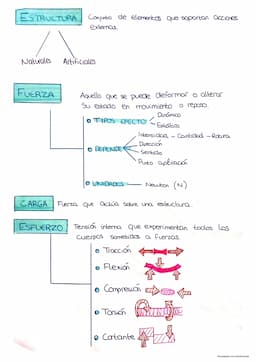 ESTRUCTURA Conjunto de elementos que soportan acciones
externas.
Naturales Artificiales
FUERZA Aquello que se puede deformar o alterar
su estado en movimiento o reposo.
TIPOS EFECTO Dinámico
Estático
DEPENDE Intensidad - Cantidad -
Dirección
Sentido
Punto aplicación
UNIDADES Newton (N)
CARGA Fuerza que actúa sobre una estructura.
ESFUERZO Tensión interna que experimentan todos los
cuerpos sometidos a fuerzas.
Tracción
Flexión
Compresión
Torsión
Cortante